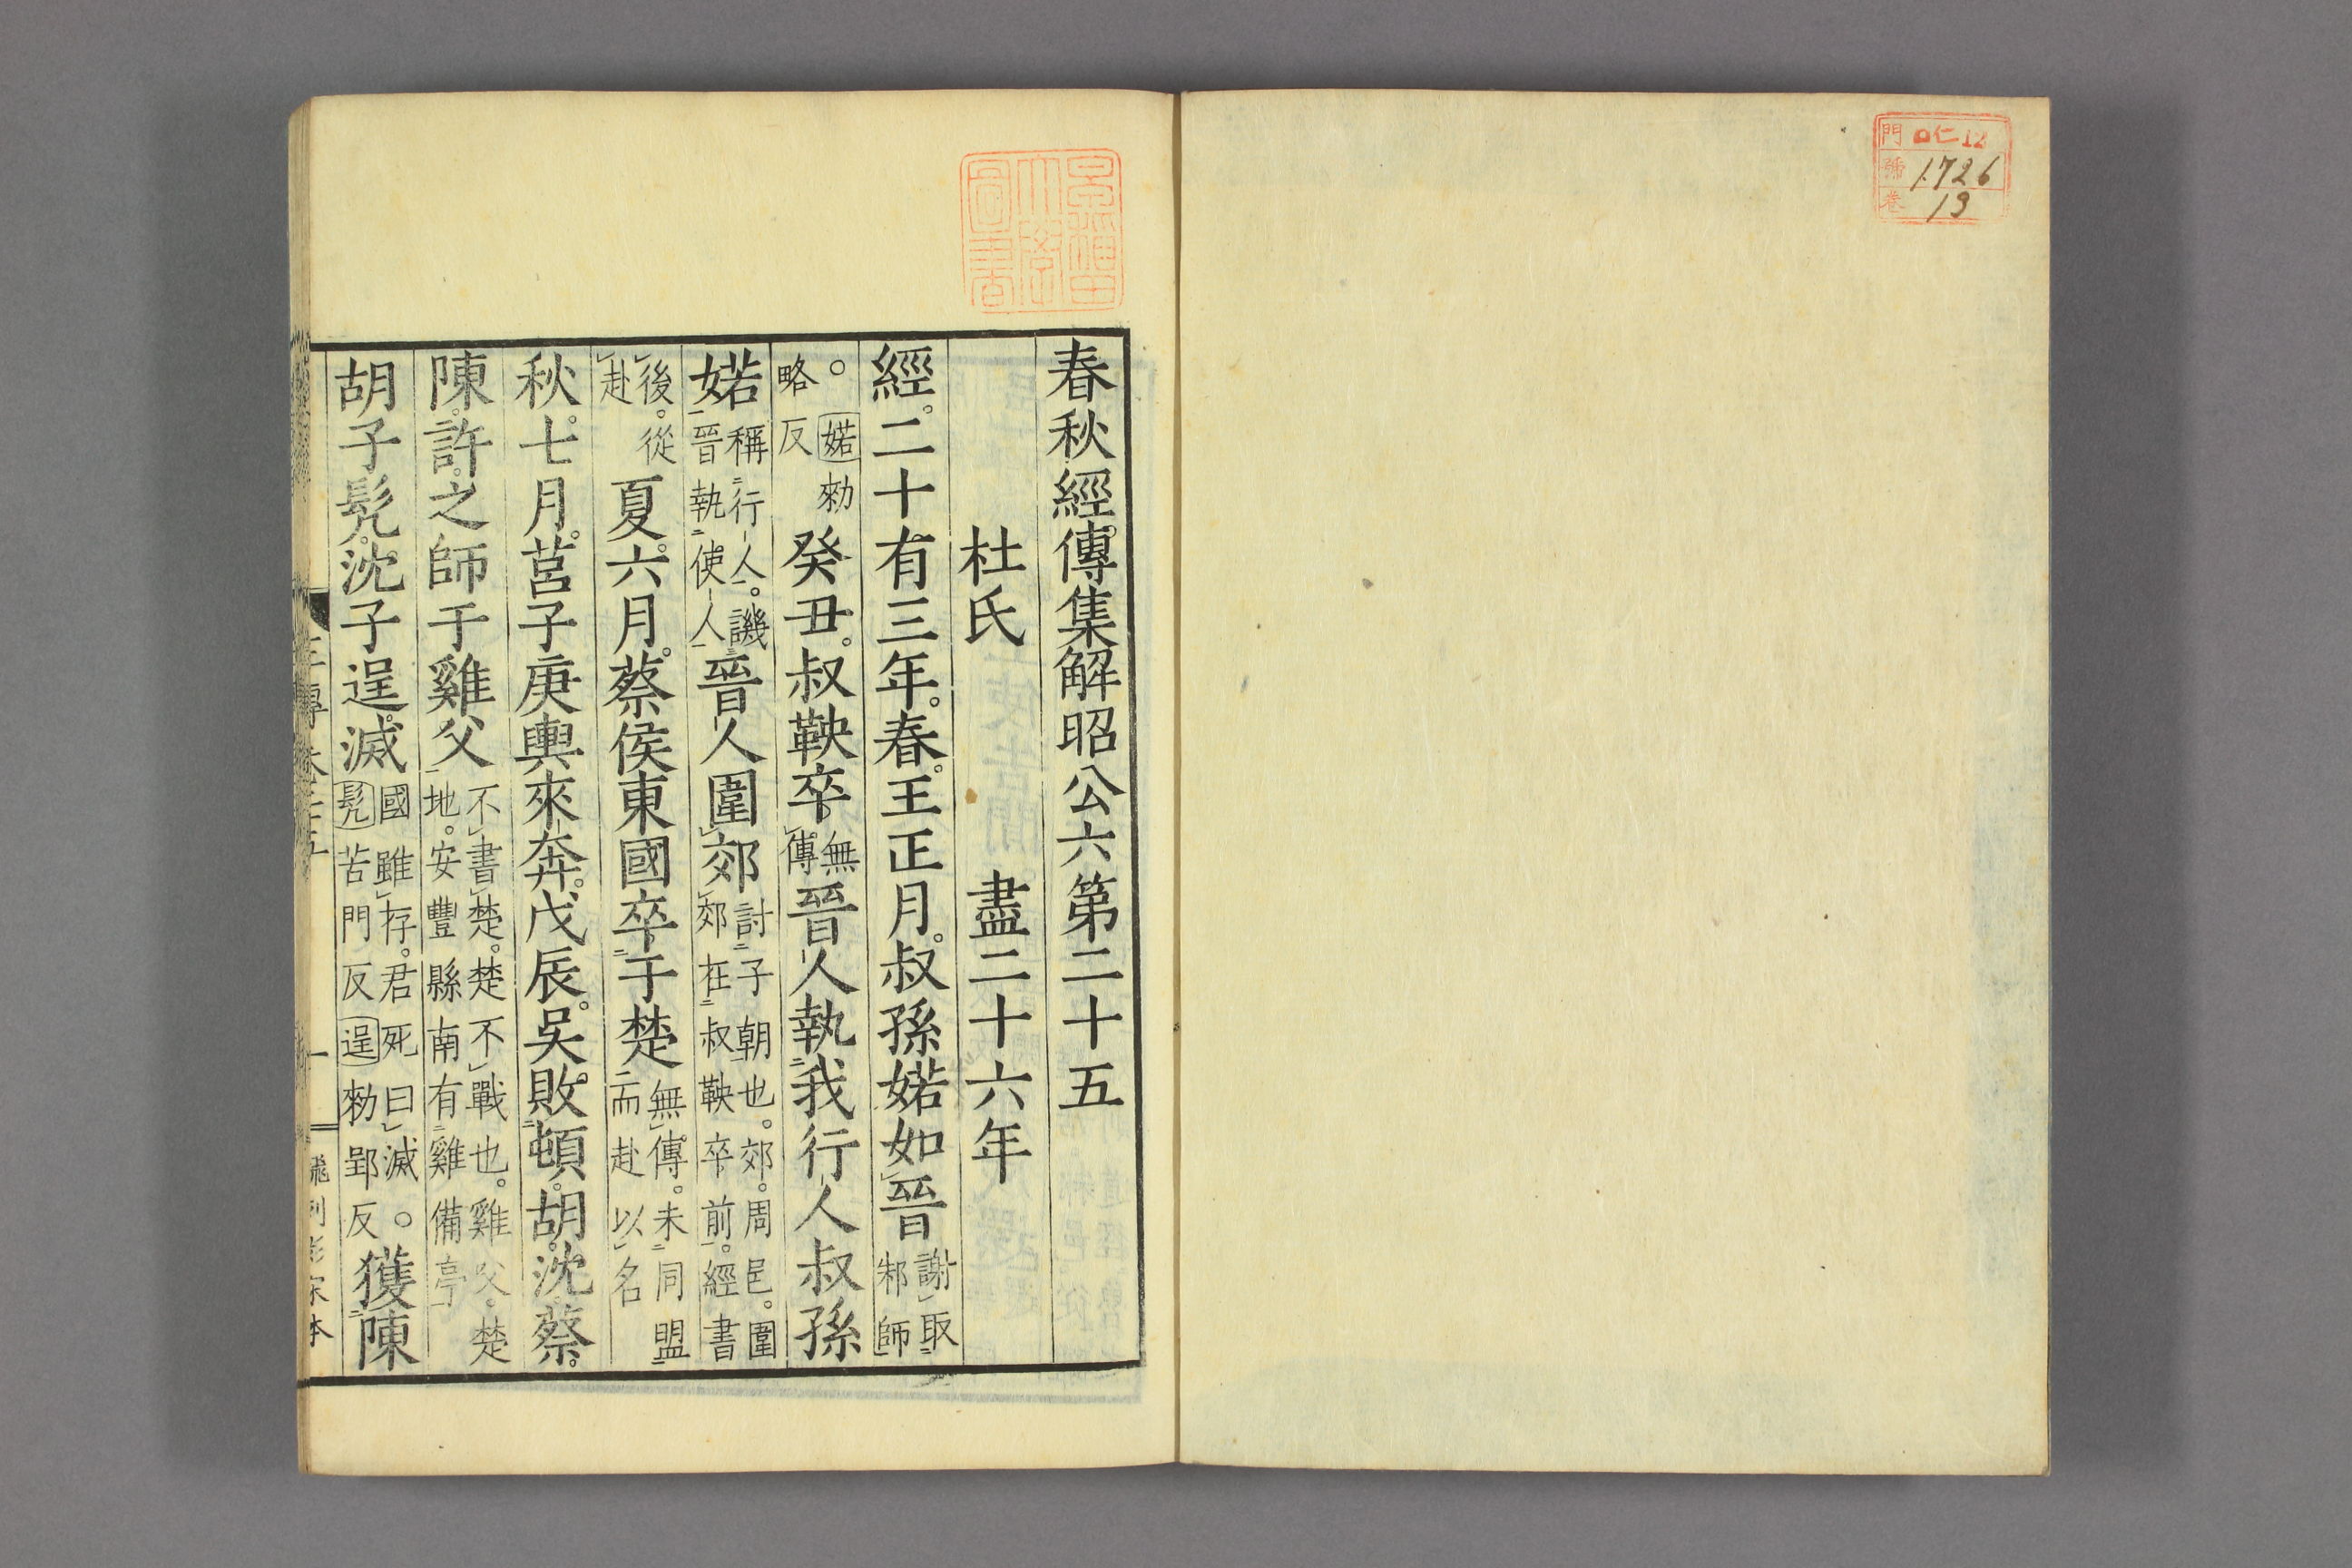 門 ロ仁12
號 1726
卷 13
春秋經傳集解昭公六第二十五
杜氏 盡二十六年
經二十有三年。春。王正月。叔孫婼如晉謝取邾師
。婼勑略反癸丑。叔鞅卒。無傳晉人執我行人叔孫
婼稱行人。譏晉執使人晉人圍郊討子朝也。郊。周邑。圍郊在叔鞅卒前。經書
後。從赴夏。六月。蔡侯東國卒于楚無傳。未同盟而赴以名
秋。七月。莒子庚輿來奔。戊辰。吳敗頓。胡。沈。蔡。
陳。許之師于雞父不書楚。楚不戰也。雞父。楚地。安豐縣南有雞備亭
胡子髡。沈子逞。滅國雖存。君死曰滅。髡苦門反逞勑郢反獲陳
早稲田大學圖書